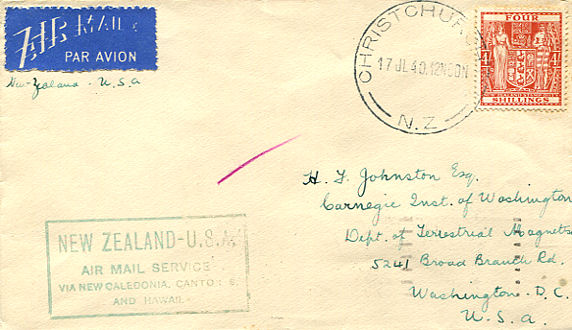 AIR MAIL
PAR AVION
New-Zealand - U.S.A
CHRISTCHUR
17 JL 40.12NOON
N.Z
FOUR
4/ 4/
NEW ZEALAND STAMP DUTY
SHILLINGS
H. F. Johnston Esq.
Carnegie Inst. of Washington
Dept. of Terrestrial Magnets
5241 Broad Branch Rd.
Washington. D.C.
U.S.a.
NEW ZEALAND-U.S.A.
AIR MAIL SERVICE
VIA NEW CALEDONIA, CANTON IS.
AND HAWAII